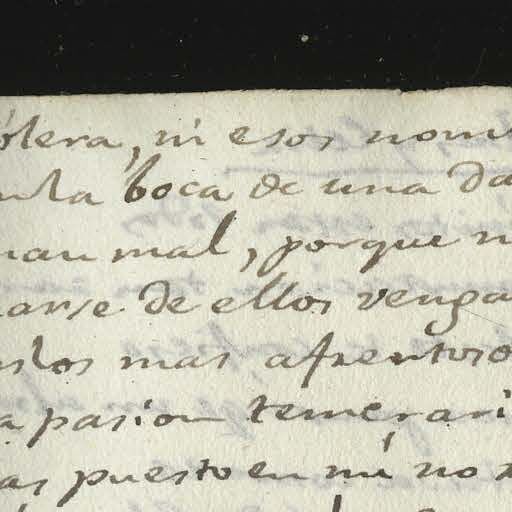 ólera, ni esos nom
nla boca de una da
nan mal, porque n
arse de ellos venga
nslos mas afrentoso
a pasion temerari
as puesto en mi no